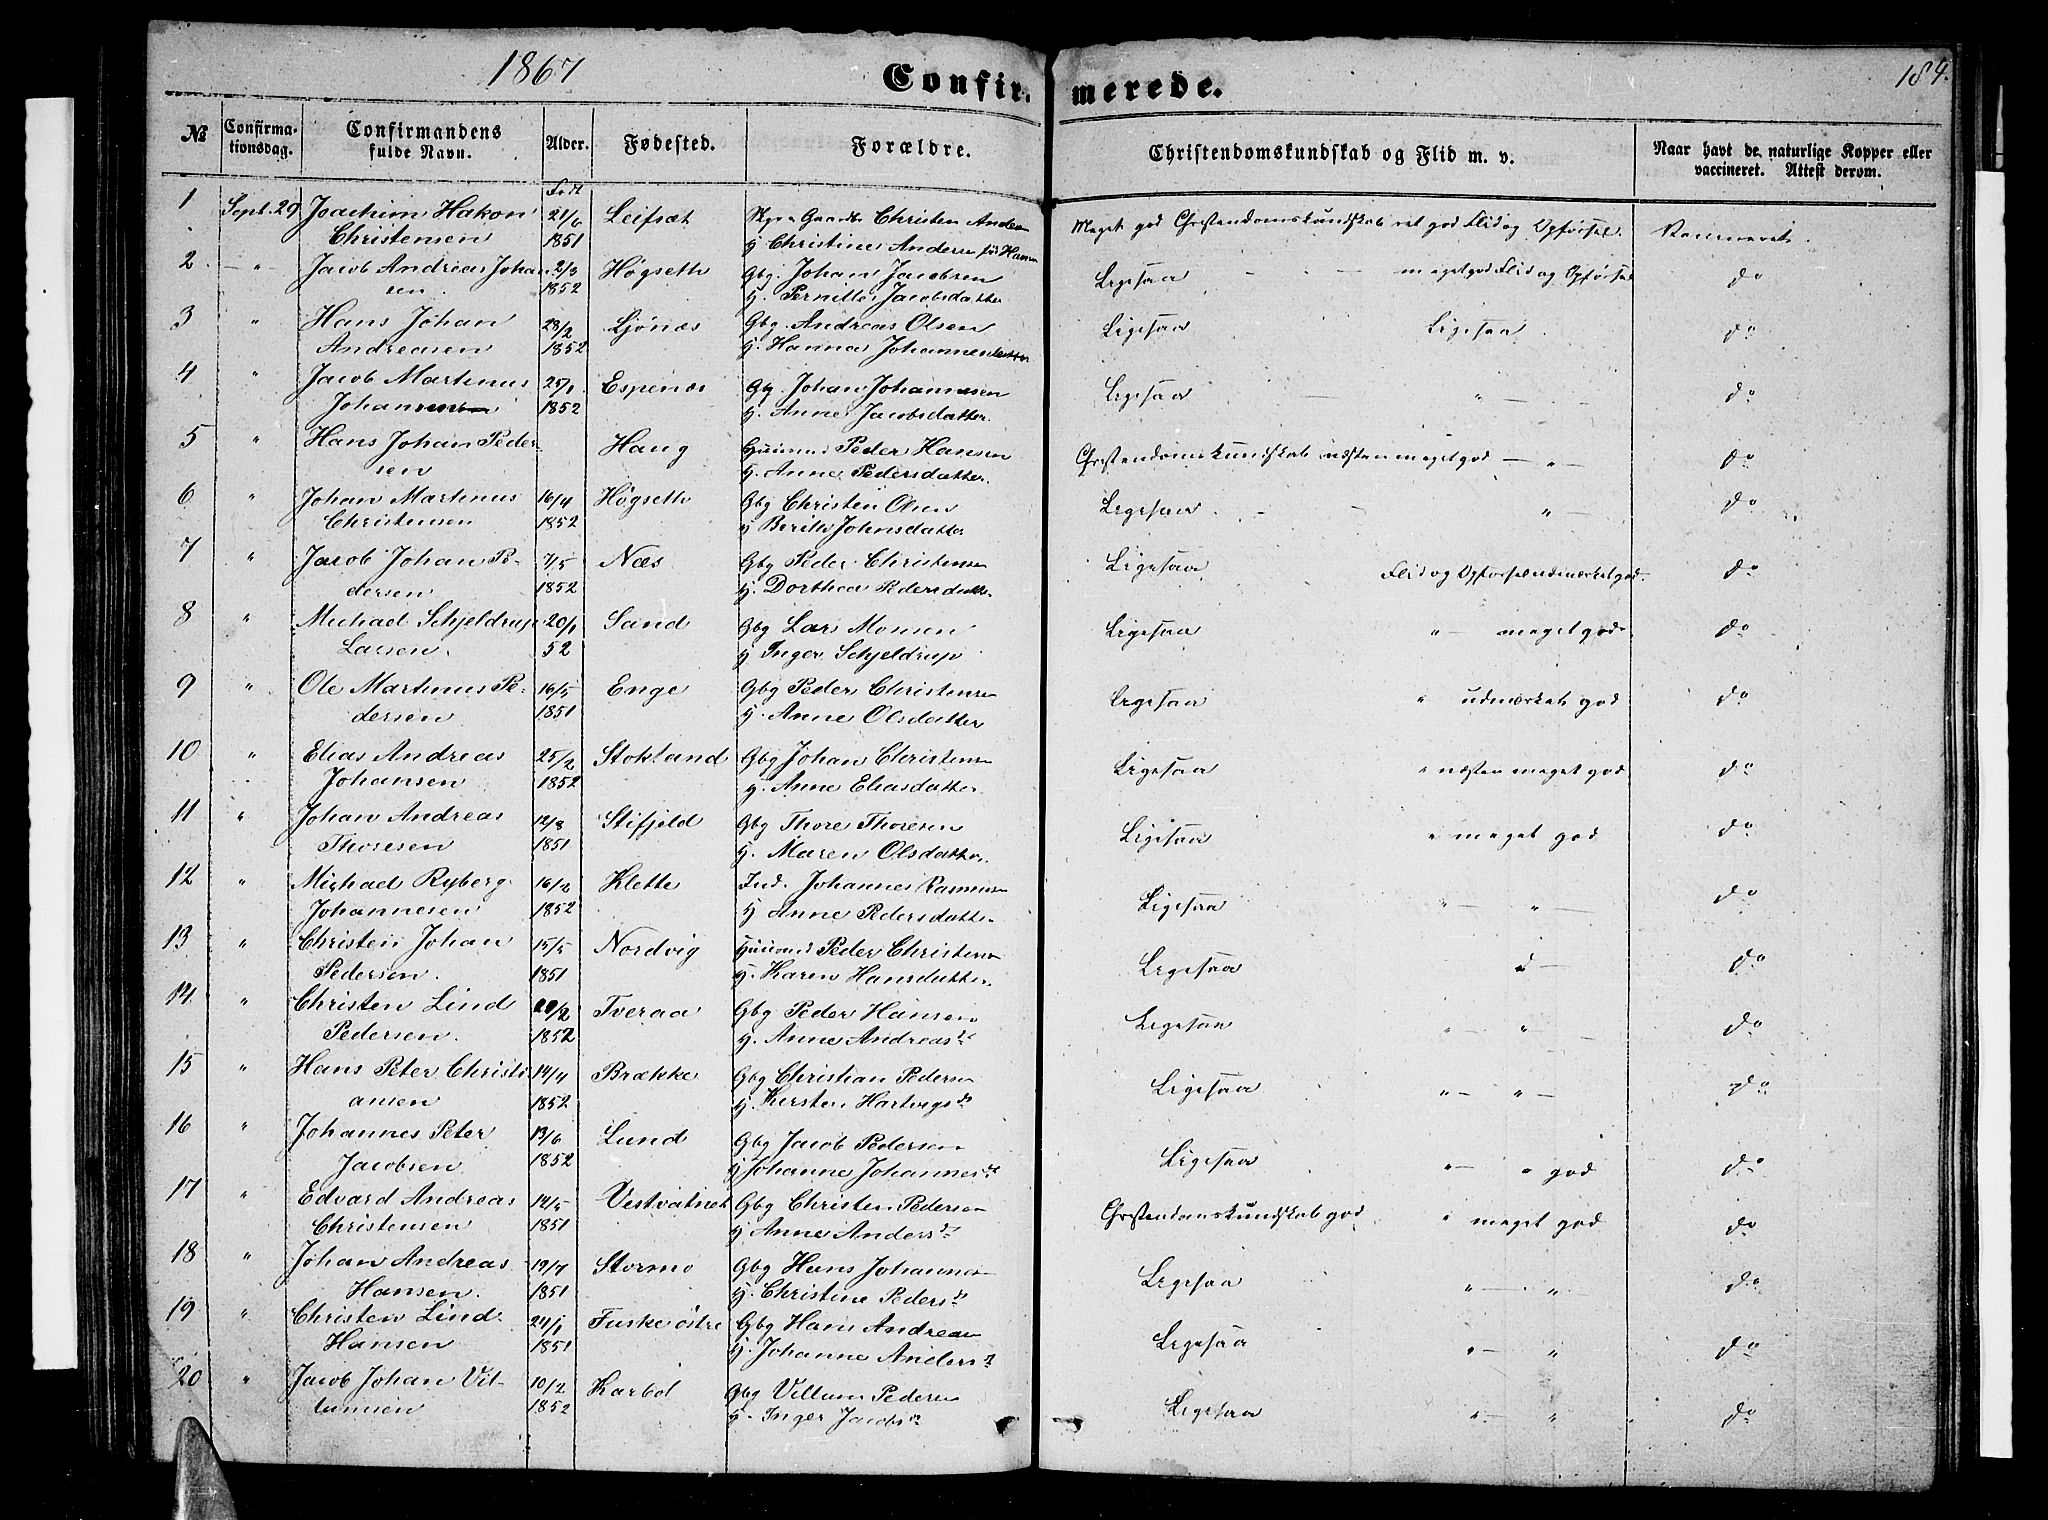 1867
184.
Confir-
merede.
No
Confirma-
tionsdag.
Confirmandens
fulde Navn.
Alder.
Fødested.
Forældre.
Christendomskundskab og Flid m. v.
Naar havt de naturlige Kopper eller
vaccineret. Attest derom.
Født
1 Sept. 29 Joachim Hakon 21/6 Leifsæt Christen Anders Meget god Christendomskundskab ret god Flid og Opførsel.
Christensen 1851 H. Christine Anders
2 — " Jacob Andreas Johan 2/3 Høgseth Gbg. Johan Jacobsen Ligesaa — — meget god Flid og Opførsel do
sen. 1852 H. Pernille Jacobsdatter
3 " Hans Johan 28/2 Ljønæs Gbg. Andreas Olsen Ligesaa Ligesaa do
Andreasen 1852 H. Hanna Johannesdatter
4 " Jacob Martinus 25/1 Espenæs Gbg Johan Johannesen Ligesaa — " — do
Johansen 1852 H. Anne Jacobsdatter.
5 " Hans Johan Peder- Haug Huusmd Peder Hansen Christendomskundskab næsten meget god — " — do
sen H. Anne Pedersdatter.
6 " Johan Martinus 16/4 Høgseth Gbg Christen Olsen Ligesaa - - " — do
Christensen 1852 H Berith Johnsdatter
7 " Jacob Johan Pe- 7/5 Næs Gbg Peder Christensen Ligesaa Flid og Opførsel udmærket god. do
dersen 1852 H. Dorthea Pedersdatter.
8 " Michael Schjeldrup 20/1 Sand Gbg Lars Monsen Ligesaa " — meget god do
Larsen. 52 H Inger Schjeldrup
9 " Ole Martinus Pe- 16/5 Enge Gbg Peder Christensen Ligesaa " udmærket god do
dersen 1851 H. Anne Olsdatter
10 " Elias Andreas 25/2 Stokland Gbg Johan Christensen Ligesaa " næsten meget god do
Johansen 1852 H. Anne Eliasdatter.
11 " Johan Andreas 12/8 Stifjeld Gbg Thore Thoresen Ligesaa " meget god do
Thoresen 1851 H. Maren Olsdatter.
12 " Michael Ryberg 16/2 Klette Ind. Johannes Rasmusen Ligesaa " — " — do
Johannesen 1852 H Anne Pedersdatter
13 " Christen Johan 15/5 Nordvig Huusmd Peder Christensen Ligesaa do
Pedersen. 1851 H. Karen Hansdatter.
14 " Christen Lind Tveraa Gbg Peder Hansen Ligesaa " — " — do
Pedersen. 1852 H. Anne Andreasdr
15 " Hans Peter Christi- 14/4 Brække Gbg Christian Pedersen Ligesaa " — " — do
ansen 1852 H. Kirsten Hartvigsdr
16 " Johannes Peter 13/6 Lund Gbg Jacob Pedersen Ligesaa " — " god do
Jacobsen 1852 H Johanne Johannesdr
17 " Edvard Andreas 14/5 Vestvatnet Gbg Christen Pedersen Christendomskundskab god " meget god do
Christensen 1851 H Anne Andersdr
18 " Johan Andreas 19/7 Stormo Gbg Hans Johannesen Ligesaa " — " do
Hansen. 1851 H. Christine Pedersdr
19 " Christen Lind 24/1 Fuskeøstre Gbg Hans Andreasen Ligesaa " — " do
Hansen 1851 H. Johanne Andersdr
20 " Jacob Johan Vil- 10/2 Karbøl Gbg Villum Pedersen Ligesaa " — " do
lumsen 1852 H. Inger Jacobsdr